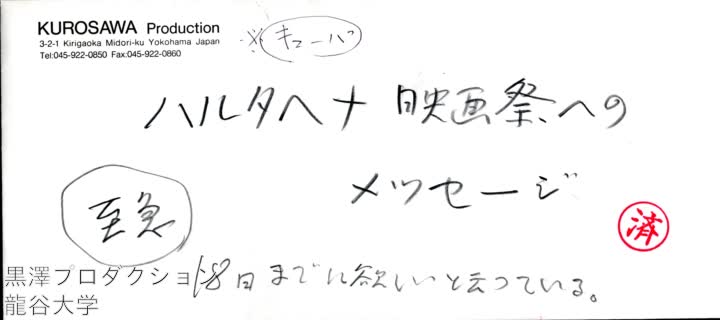 KUROSAWA Production
3-2-1 Kirigaoka Midori-ku Yokohama Japan
Tel:045-922-0850 Fax:045-922-0860
※キューバ
ハルタヘナ映画祭への
メッセージ
至急
済
18日までに欲しいと云っている。
黒澤プロダクショ
龍谷大学